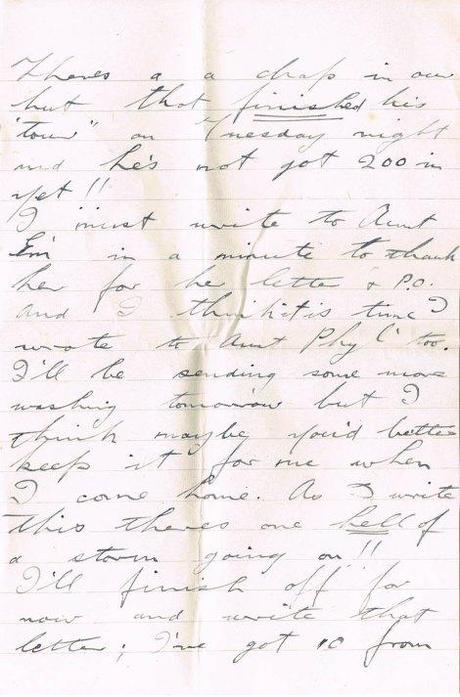 Theres a a chap in our
hut that finished his
"tour" on Tuesday night
and he's not got 200 in
yet!!
I must write to Aunt
Em in a minute to thank
her for he letter & P.O.
And I think it is time I
wrote to Aunt Phyl too.
I'll be sending some more
washing tomorrow but I
think maybe you'd better
keep it for me when
I come home. As I write
this theres one hell of
a storm going on!!
I'll finish off for
now and write that
letter; I've got to from